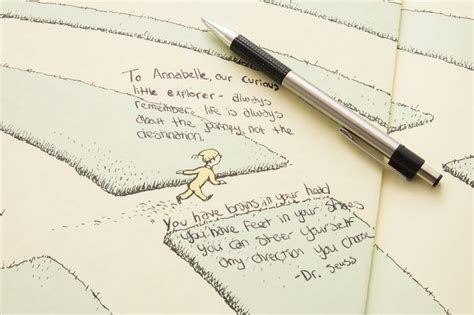 To Annabelle, our curious
little explorer - always
remember life is always
about the journey, not the
destination.
You have brains in your head
You have feet in your shoes
You can steer yourself
any direction you choose
-Dr. Seuss